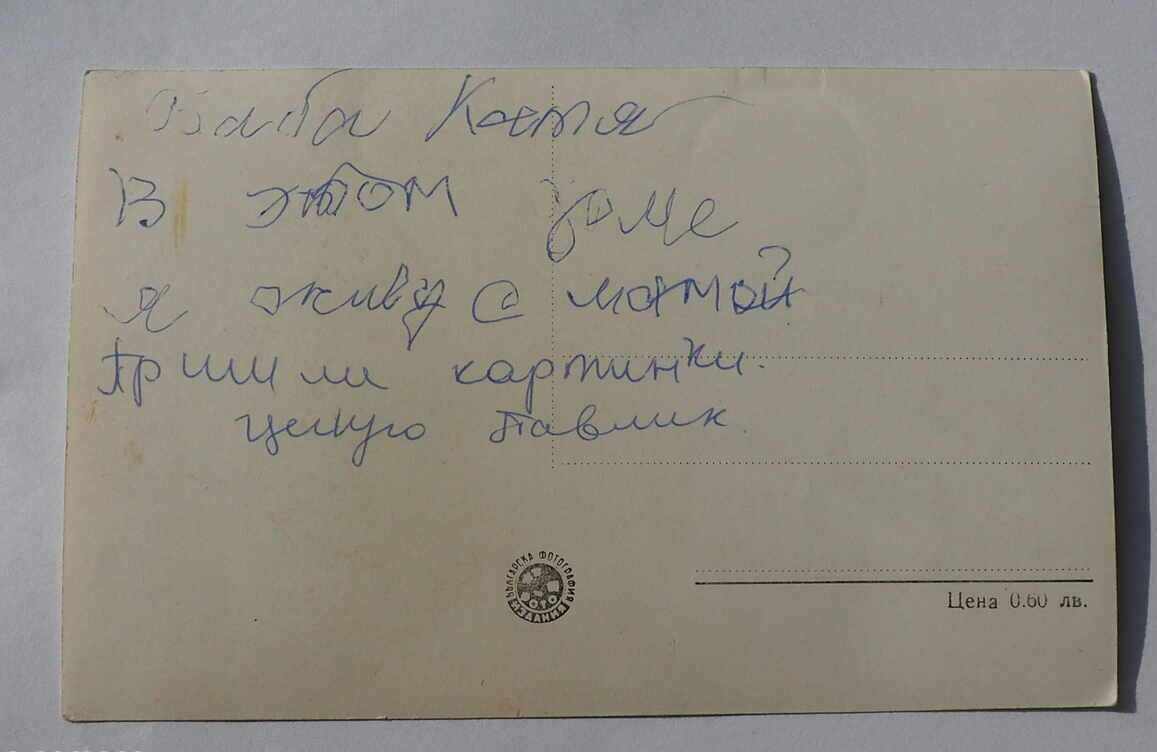 Баба Катя
В этом доме
я живу с мамой
Пришли картинки.
целую Павлик
БЪЛГАРСКА ФОТОГРАФИЯ
ИЗДАНИЯ
Цена 0.60 лв.